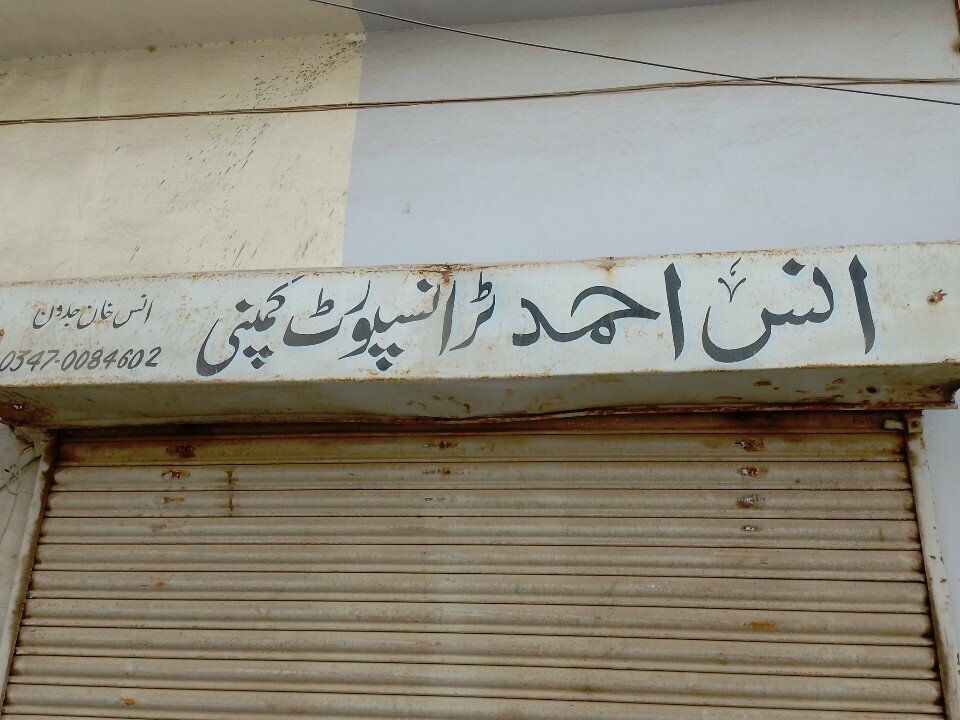 انس احمد ٹرانسپورٹ کمپنی
انس خان جدون
0347-0084602